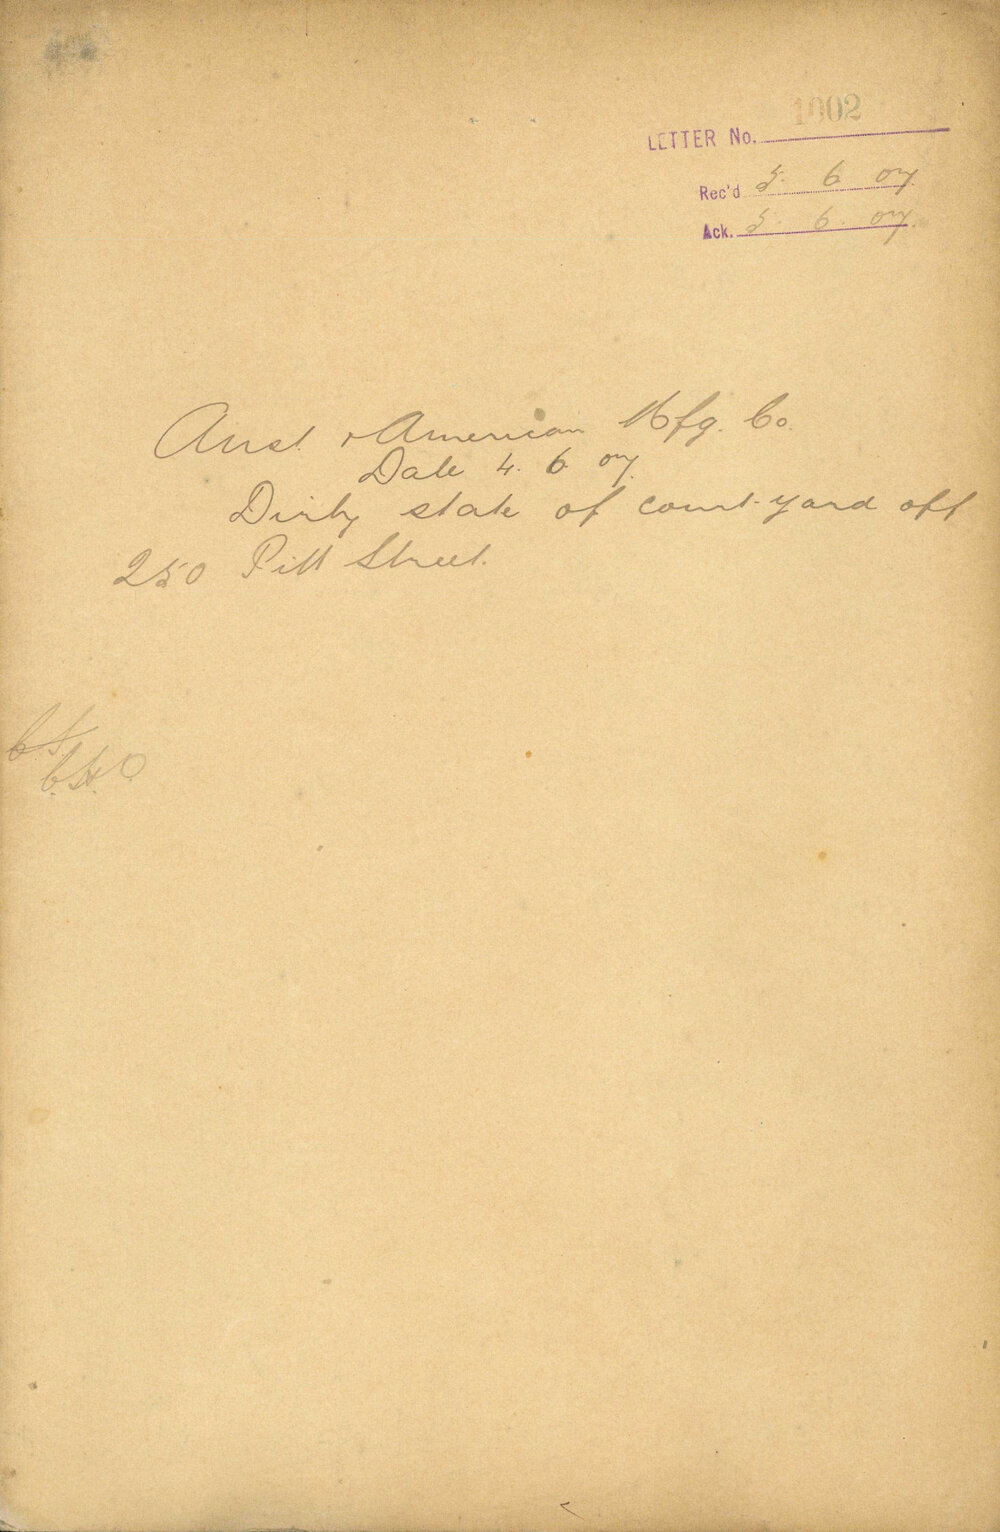 1002
LETTER No.
Rec'd 5. 6 07.
Ack. 5. 6. 07.
Aust. & American Mfg. Co.
Date 4. 6. 07.
Dirty state of court-yard off
250 Pitt Street.
C.S.
C.H.O.